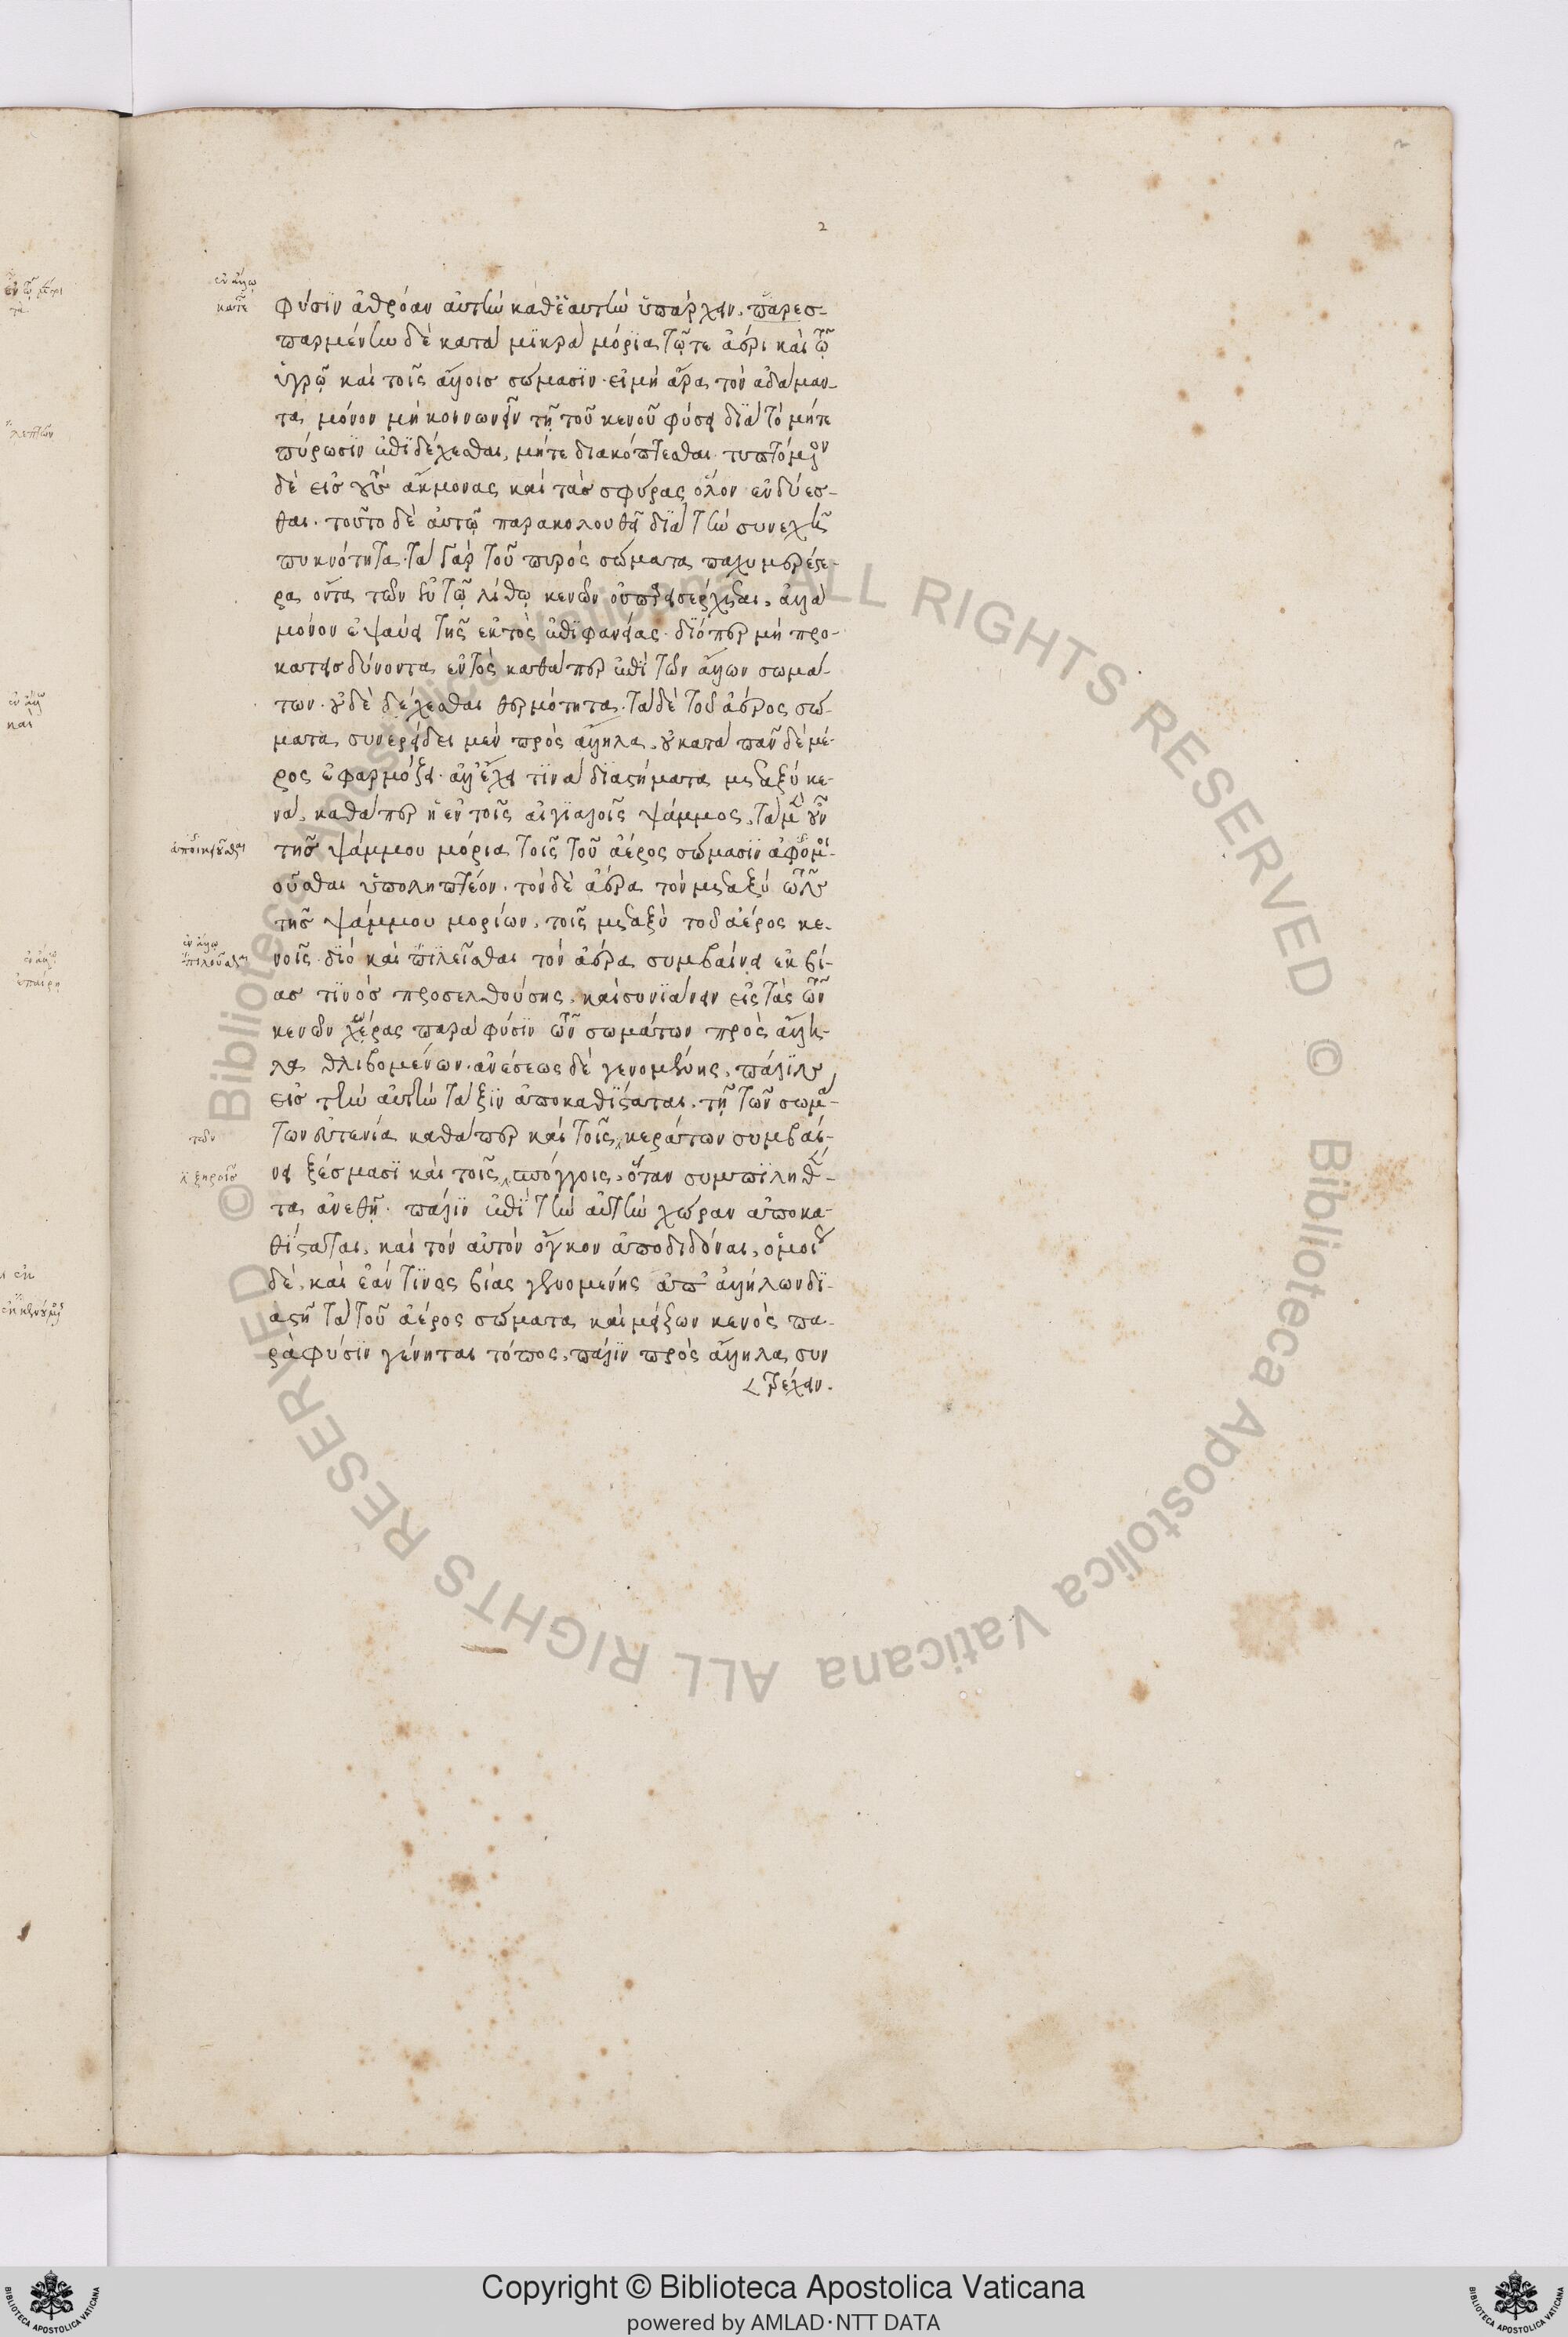 2
ἐν ἄλλῳ
κατε
φύσϊν ἀθρόαν αὐτὴν καθ' ἑαυτὴν ὑπάρχειν. παρεσ-
παρμένην δὲ κατὰ μϊκρὰ μόρϊα τῷ τε ἀέρι καὶ τῷ
ὑγρῷ καὶ τοῖς ἄλλοις σώμασϊν. εἰ μὴ ἄρα τὸν ἀδάμαν-
τα μόνον μὴ κοινωνεῖν τῇ τοῦ κενοῦ φύσει διὰ τὸ μήτε
πύρωσϊν ἐπϊδέχεσθαι, μήτε διακόπτεσθαι. τυπτόμενον
δὲ εἰς τοὺς ἄκμονας καὶ τὰς σφύρας ὅλον ἐνδύεσ-
θαι. τοῦτο δὲ αὐτῷ παρακολουθεῖ διὰ τὴν συνεχῆ
πυκνότητα. τὰ γὰρ τοῦ πυρὸς σώματα παχυμερέστε-
ρα ὄντα τῶν ἐν τῷ λίθῳ κενῶν οὐ παρεισέρχεται, ἀλλὰ
μόνον ἐψαύει τῆς ἐκτὸς ἐπϊφανείας. διόπερ μὴ προ-
κατεισδύνοντα ἐντὸς καθάπερ ἐπὶ τῶν ἄλλων σωμά-
των. οὐδὲ δέχεσθαι θερμότητα. τὰ δὲ τοῦ ἀέρος σώ-
ματα συνερείδει μὲν πρὸς ἄλληλα, οὐ κατὰ πᾶν δὲ μέ-
ρος ἐφαρμόζει. ἀλλ' ἔχει τϊνὰ διαστήματα μεταξὺ κε-
νά, καθάπερ ἡ ἐν τοῖς αἰγιαλοῖς ψάμμος. τὰ μὲν οὖν
τῆς ψάμμου μόρια τοῖς τοῦ ἀέρος σώμασϊν ἀφομοι-
οῦσθαι ὑποληπτέον. τὸν δὲ ἀέρα τὸν μεταξὺ τῶν
τῆς ψάμμου μορίων, τοῖς μεταξὺ τοῦ ἀέρος κε-
ἐν ἄλλῳ
πιλοῦσθαι
νοῖς. διὸ καὶ πϊλεῖσθαι τὸν ἀέρα συμβαίνει ἐκ βί-
ας τϊνὸς προσελθούσης, καὶ συνϊζάνειν εἰς τὰς τῶν
κενῶν χώρας παρὰ φύσϊν τῶν σωμάτων πρὸς ἄλλη-
λα θλιβομένων. ἀνέσεως δὲ γενομένης, πάλϊν
εἰς τὴν αὐτὴν τάξϊν ἀποκαθίσταται. τῇ τῶν σωμά-
των
των εὐτονίᾳ καθάπερ καὶ τοῖς κεράτων συμβαί-
ξηροῖς
νει ξέσμασϊ καὶ τοῖς σπόγγοις, ὅταν συμπϊληθέν-
τα ἀνεθῇ. πάλϊν ἐπϊ τὴν αὐτὴν χώραν ἀποκα-
θίσταται, καὶ τὸν αὐτὸν ὄγκον ἀποδιδόναι, ὁμοίως
δὲ, καὶ ἐάν τϊνος βίας γενομένης ἀπ' ἀλλήλων δϊ-
αστῇ τὰ τοῦ ἀέρος σώματα καὶ μείζων κενὸς πα-
ρὰ φύσϊν γένηται τόπος, πάλϊν πρὸς ἄλληλα συν
τρέχειν.
Copyright © Biblioteca Apostolica Vaticana
powered by AMLAD·NTT DATA
© Biblioteca Apostolica Vaticana ALL RIGHTS RESERVED © Biblioteca Apostolica Vaticana ALL RIGHTS RESERVED